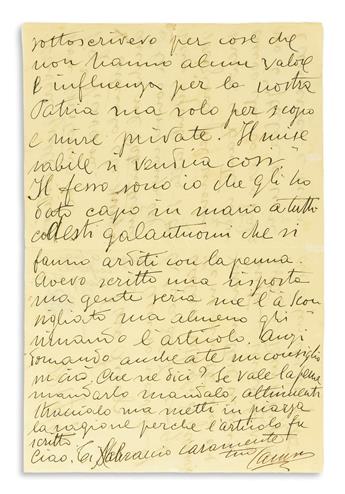 sottoscrivero per cose che
non hanno alcun valore
e influenza per la nostra
Patria ma solo per scopo
e mire private. Il mise
rabile si vendica così
Il fesso sono io che gli ho
dato capo in mano a tutti
codesti galantuomi che si
fanno arditi con la penna.
Avevo scritto una risposta
ma gente seria me l'à scon
sigliato ma almeno gli
rimando l'articolo. Anzi
domando anche a te un consiglio
in ciò. Che ne dici? Se vale la pena
mandarlo mandalo, altrimenti
straccialo ma metti in piazza
la ragione perche l'articolo fu
scritto
Ciao. Ti abbraccio caramente
tuo